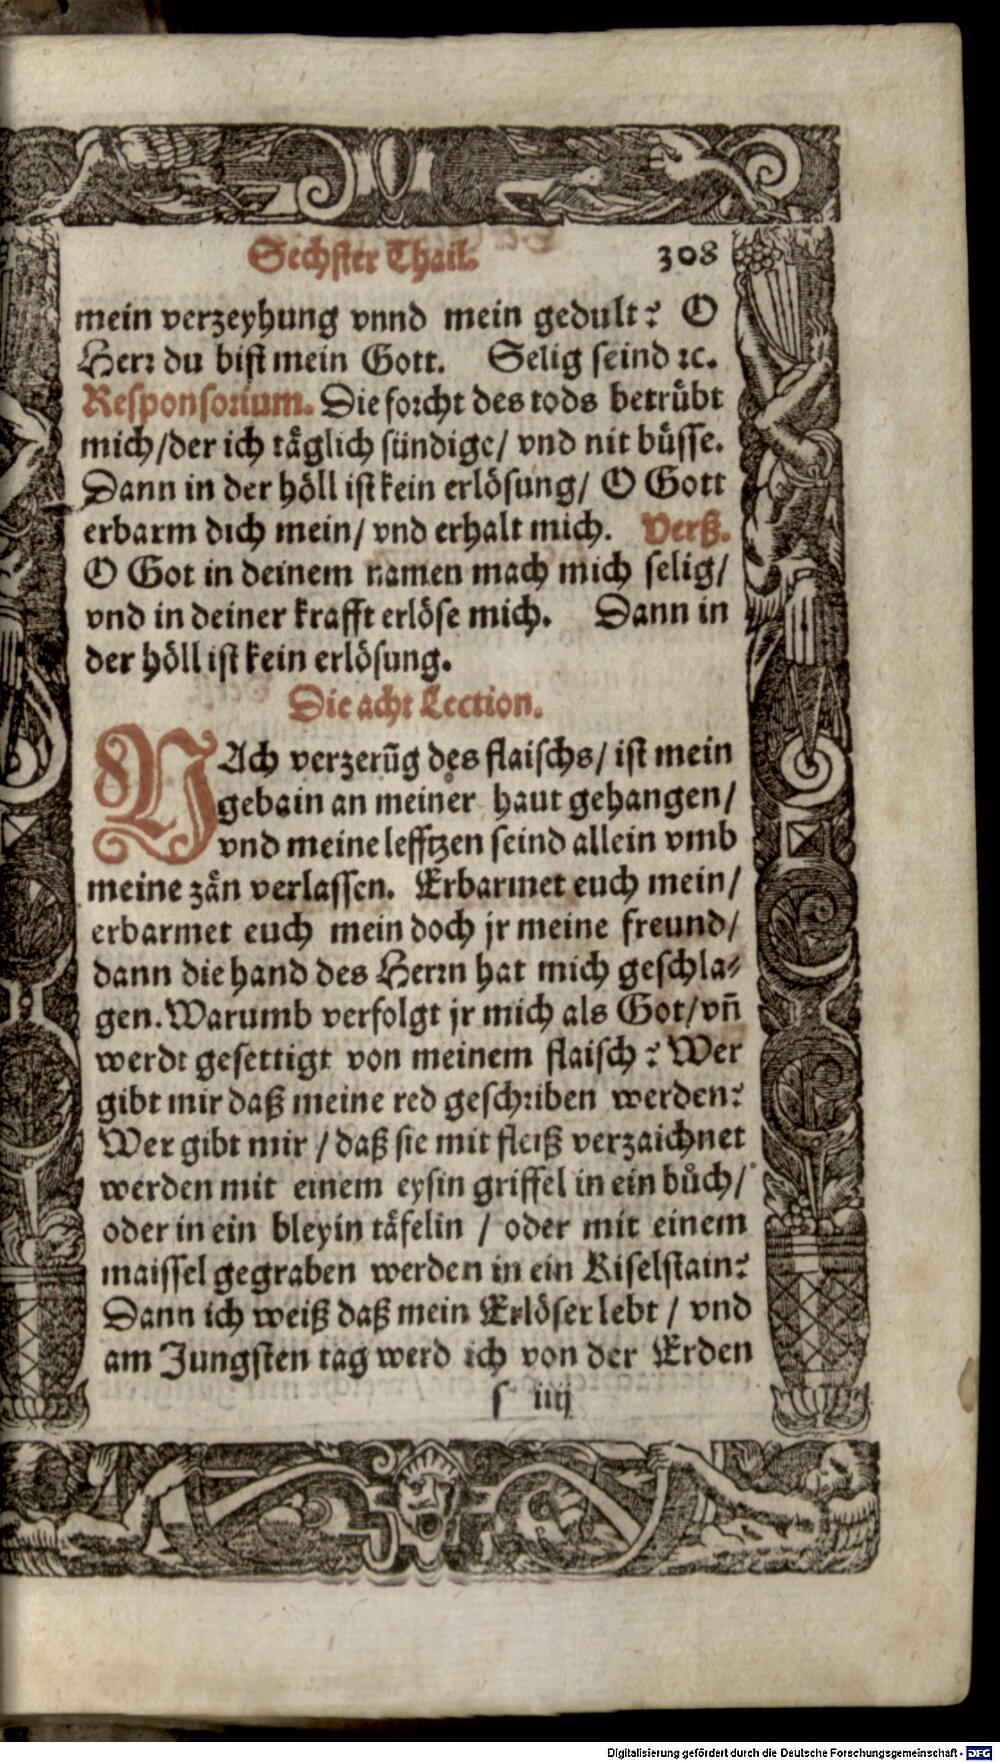 Sechster Thail. 308
mein verzeyhung vnnd mein gedult? O
Herr du bist mein Gott. Selig seind ꝛc.
Responsorium. Die forcht des tods betrübt
mich/der ich täglich sündige/ vnd nit büsse.
Dann in der höll ist kein erlösung/ O Gott
erbarm dich mein/ vnd erhalt mich. Verß.
O Got in deinem namen mach mich selig/
vnd in deiner krafft erlöse mich. Dann in
der höll ist kein erlösung.
Die acht Lection.
NAch verzerūg des flaischs/ ist mein
gebain an meiner haut gehangen/
vnd meine lefftzen seind allein vmb
meine zän verlassen. Erbarmet euch mein/
erbarmet euch mein doch jr meine freund/
dann die hand des Herrn hat mich geschla⸗
gen. Warumb verfolgt jr mich als Got/ vn̄
werdt gesettigt von meinem flaisch? Wer
gibt mir daß meine red geschriben werden?
Wer gibt mir / daß sie mit fleiß verzaichnet
werden mit einem eysin griffel in ein bůch/
oder in ein bleyin täfelin / oder mit einem
maissel gegraben werden in ein Kiselstain?
Dann ich weiß daß mein Erlöser lebt / vnd
am Jungsten tag werd ich von der Erden
s iiij
Digitalisierung gefördert durch die Deutsche Forschungsgemeinschaft - DFG